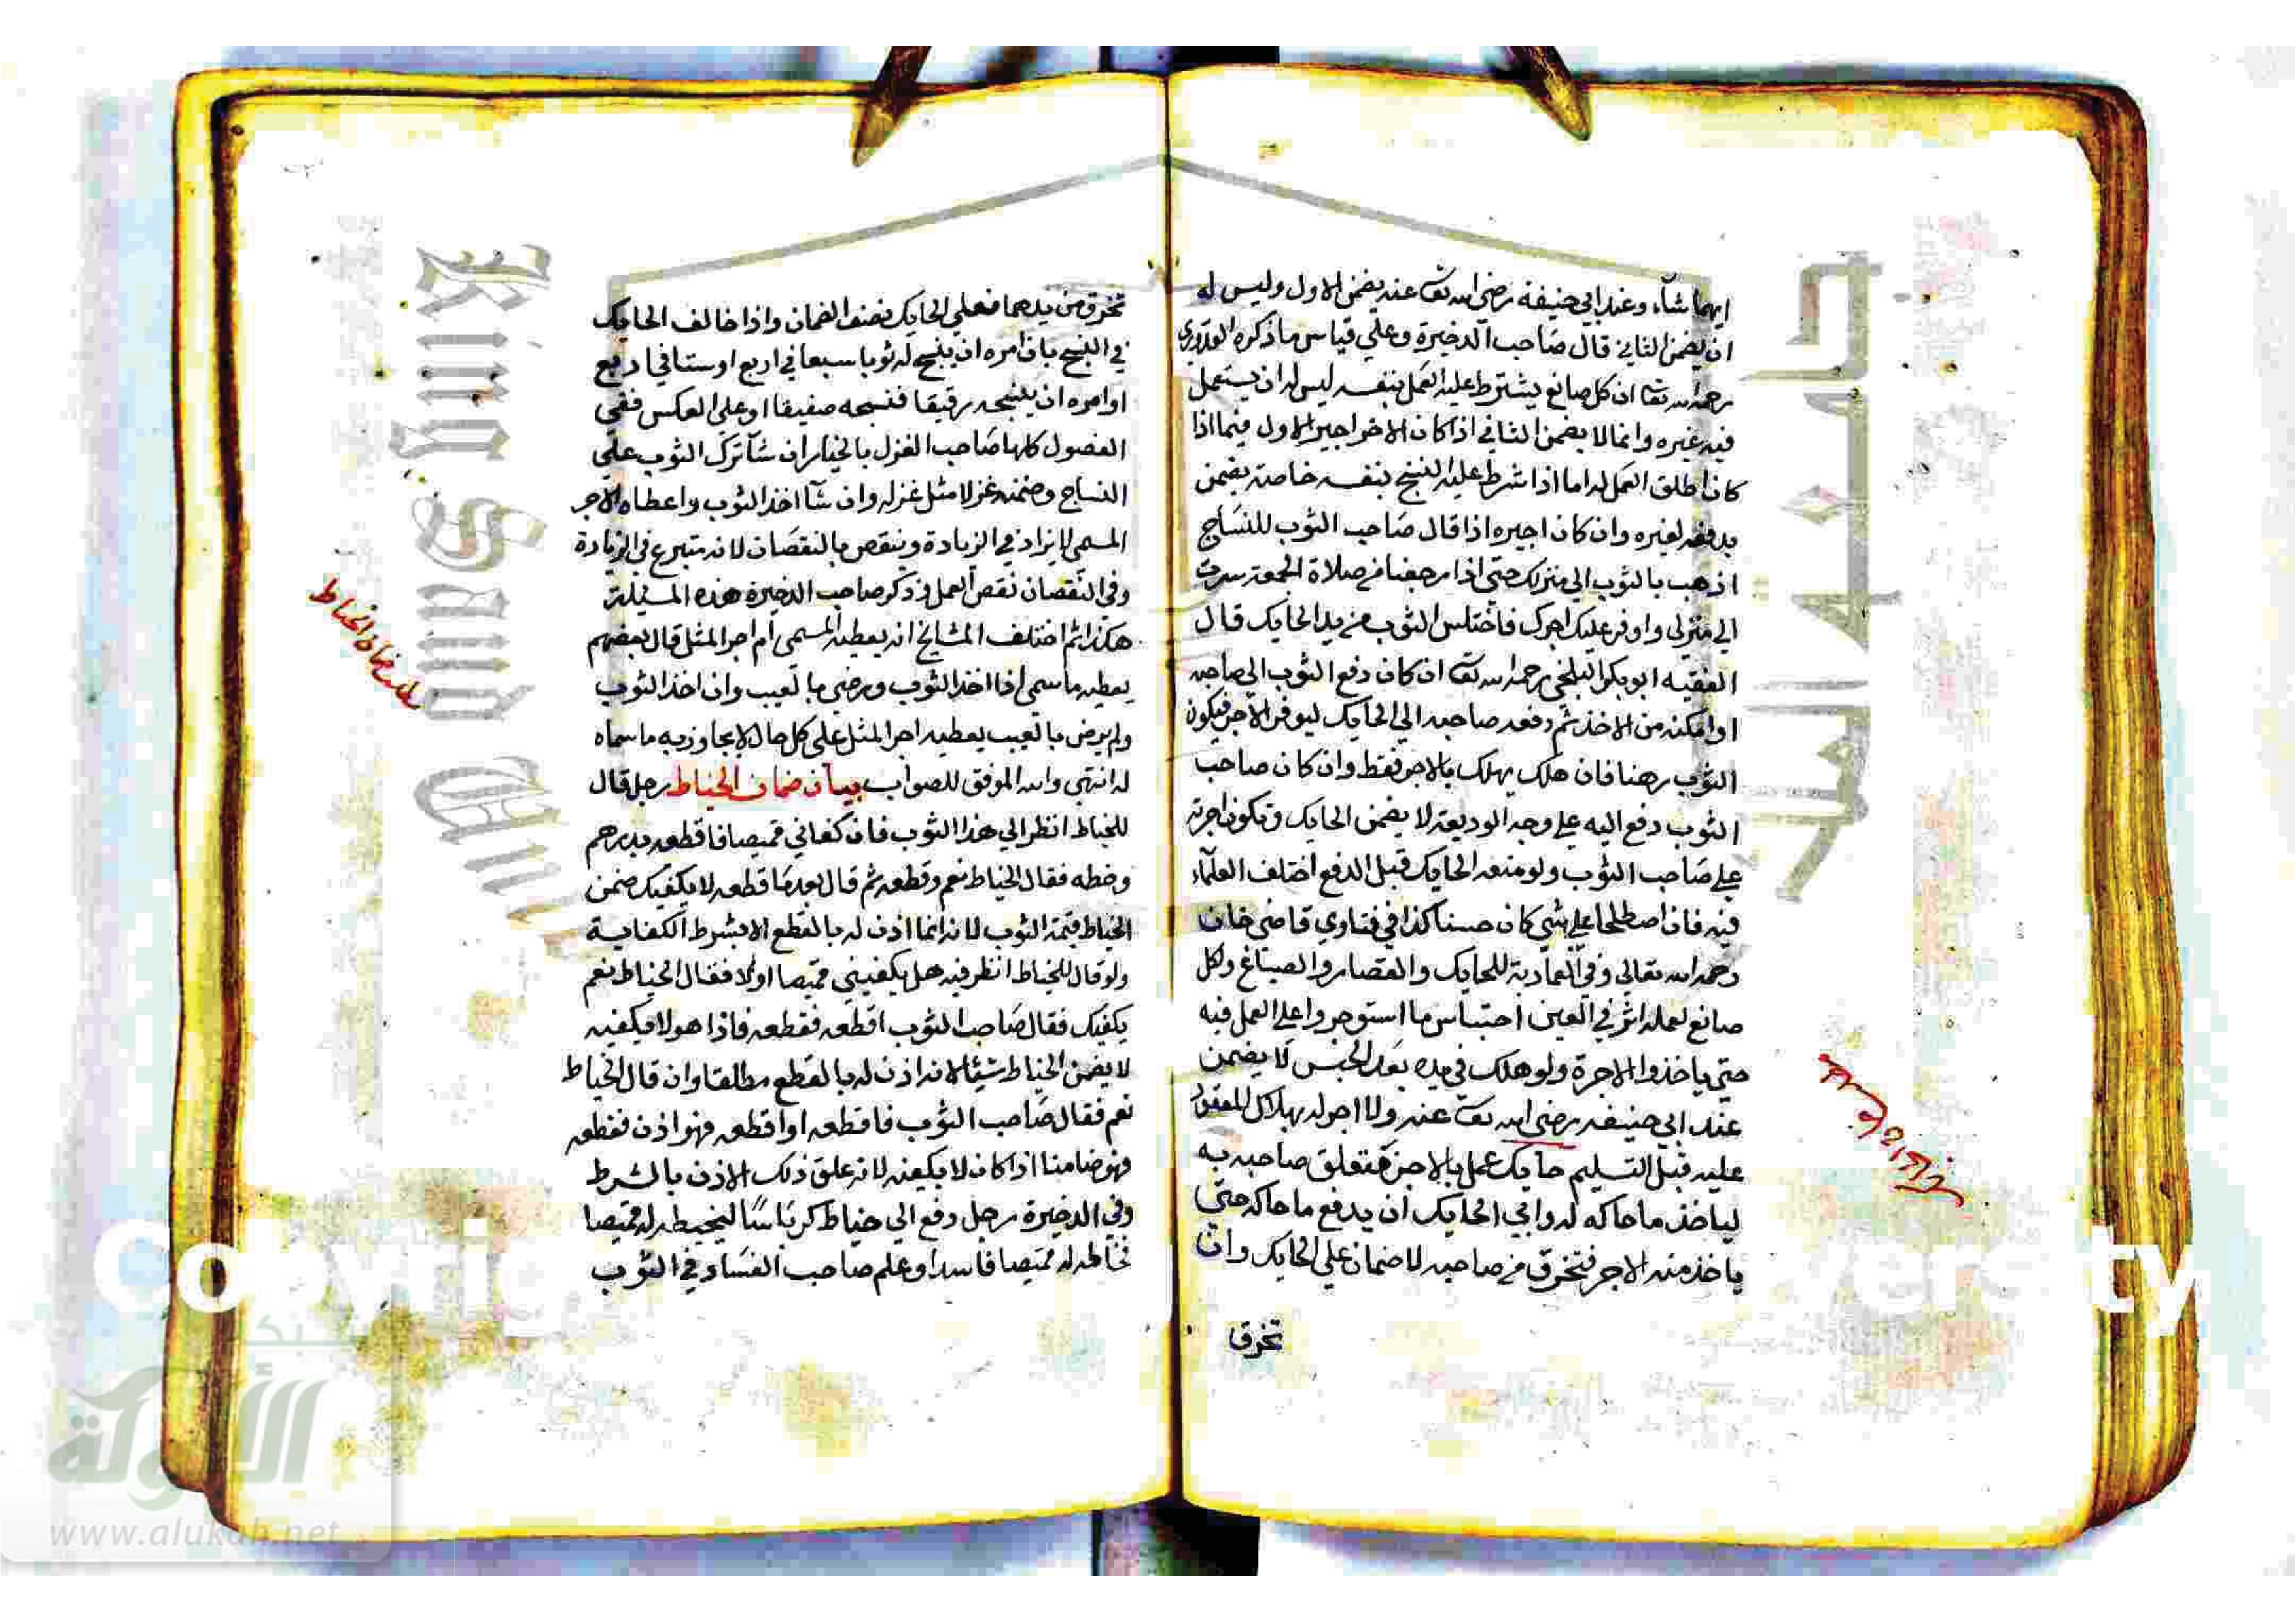 ايهما شاء وعند ابي حنيفة رضي الله تعا عنه يضمن الاول وليس له
ان يضمن الثاني قال صاحب الذخيرة وعلي قياس ما ذكره القدوري
رحمه الله تعا ان كل صانع يشترط عليه العمل بنفسه ليس له ان يستعمل
فيه غيره وانما لا يضمن الثاني اذا كان الاخر اجير الاول فيما اذا
كان اطلق العمل له اما اذا شرط عليه النسج بنفسه خاصة يضمن
بدفعه لغيره وان كان اجيره اذا قال صاحب الثوب للنساج
اذهب بالثوب الي منزلك حتي اذا رجعنا من صلاة الجمعة سرت
الي منزلي واوفر عليك اجرك فاختلس الثوب من يد الحايك قال
الفقيه ابو بكر البلخي رحمه الله تعا ان كان دفع الثوب الي صاحبه
او امكنه من الاخذ ثم دفعه صاحبه الي الحايك ليوفر الاجر فيكون
الثوب رهنا فان هلك يهلك بالاجر فقط وان كان صاحب
الثوب دفع اليه علي وجه الوديعة لا يضمن الحايك وتكون اجرته
علي صاحب الثوب ولو منعه الحايك قبل الدفع اختلف العلماء
فيه فان اصطلحا علي شي كان حسنا كذا في فتاوي قاضي خان
رحمه الله تعالي وفي العمادية للحايك والقصار والصباغ ولكل
صانع لعمله اثر في العين احتباس ما استوجروا علي العمل فيه
حتي ياخذوا الاجرة ولو هلك في يده بعد الحبس لا يضمن
عند ابي حنيفه رضي الله تعا عنه ولا اجر له بهلاك المعقود
عليه قبل التسليم حايك عمل بالاجرة فتعلق صاحبه به
لياخذ ما حاكه له وابي الحايك ان يدفع ما حاكه حتي
ياخذ منه الاجر فتخرق من صاحبه لا ضمان علي الحايك وان
تخرق
تخرق من يدهما فعلي الحايك نصف الضمان واذا خالف الحايك
في النسج بان امره ان ينسج له ثوبا سبعا في اربع او ستا في اربع
او امره ان ينسجه رقيقا فنسجه صفيقا او علي العكس ففي
الفصول كلها صاحب الغزل بالخيار ان شا ترك الثوب علي
النساج وضمنه غزلا مثل غزله وان شا اخذ الثوب واعطاه الاجر
المسمي لا يزاد في الزيادة وينقص بالنقصان لانه متبرع في الزيادة
وفي النقصان نقص العمل وذكر صاحب الذخيرة هذه المسيلة
هكذا ثم اختلف المشايخ انه يعطيه المسمي ام اجر المثل قال بعضهم
يعطيه ما سمي اذا اخذ الثوب ورضي بالعيب وان اخذ الثوب
ولم يرض بالعيب يعطيه اجر المثل علي كل حال لا يجاوز به ما سماه
له انتهي والله الموفق للصواب بيان ضمان الخياط رجل قال
للخياط انظر الي هذا الثوب فان كفاني قميصا فاقطعه بدرهم
وخطه فقال الخياط نعم وقطعه ثم قال بعد ما قطعه لا يكفيك ضمن
الخياط قيمة الثوب لانه انما اذن له بالقطع الا بشرط الكفاية
ولو قال للخياط انظر فيه هل يكفيني قميصا او لا فقال الخياط نعم
يكفيك فقال صاحب الثوب اقطعه فقطعه فاذا هو لا يكفيه
لا يضمن الخياط شيئا لانه اذن له بالقطع مطلقا وان قال الخياط
نعم فقال صاحب الثوب فاقطعه او اقطعه فهو اذن فقطعه
فهو ضامنا اذا كان لا يكفيه لانه علق ذلك الاذن بالشرط
وفي الذخيرة رجل دفع الي خياط كرباسا ليخيطه له قميصا
فخاطه له قميصا فاسدا وعلم صاحب الفساد في الثوب
الخياط
King Saud
جامعة الملك
Copyrig
ersity
شبكة
الألوكة
www.alukah.net